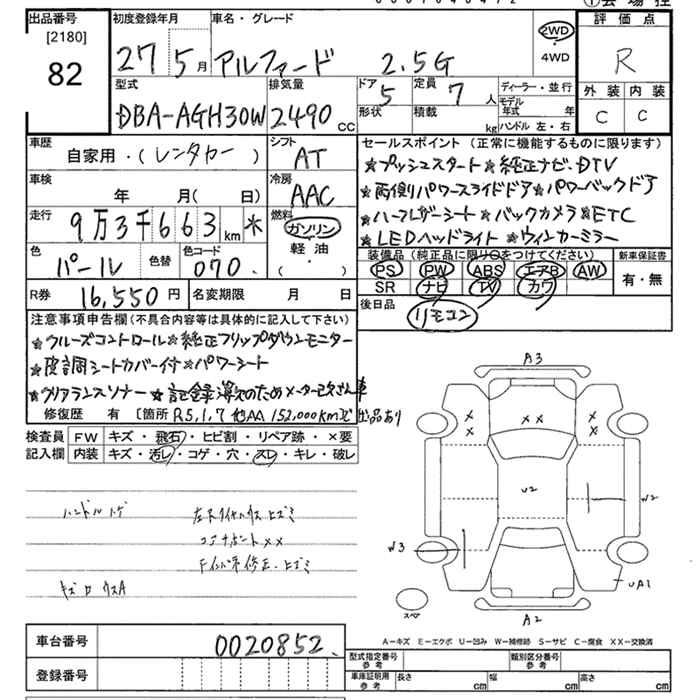 出品番号 初度登録年月 車名・グレード 評価点
[2180]
82
27 5月 アルファード 2.5G
2WD・4WD
R
型式 排気量 ドア 定員 ディーラー・並行 外装 内装
DBA-AGH30W 2490CC 5 7人
形状 積載 kg
モデル年式 年
ハンドル 左・右
C C
車歴 シフト セールスポイント (正常に機能するものに限ります)
自家用・(レンタカー) AT
★プッシュスタート★純正ナビ・DTV
★両側パワースライドドア★パワーバックドア
★ハーフレザーシート★バックカメラ★ETC
★LEDヘッドライト★ウィンカーミラー
車検 年 月(日) 冷房 AAC
走行 9万3千663km 燃料 ガソリン・軽油 ( ・ )
色 パール 色替 色コード 070
装備品 (純正品に限り○をつけてください) 新車保証書
PS PW ABS エアB AW 有・無
SR ナビ TV カワ
R券 16,550円 名変期限 月 日
後日品 リモコン
注意事項申告欄 (不具合内容等は具体的に記入して下さい)
★クルーズコントロール★純正フリップダウンモニター
シートカバー付★パワーシート
★クリアランスソナー ★記録簿
修復歴 有 [箇所 R5,1,7 他AA 152,000km 出品あり
検査員記入欄 FW キズ・飛石・ヒビ割・リペア跡・×要
内装 キズ・汚レ・コゲ・穴・スレ・キレ・破レ
ハンドル
A3
U2
W2
W3
UA1
スペア
A2
A-キズ E-エクボ U-凹み W-補修跡 S-サビ C-腐食 XX-交換済
車台番号 0020852
登録番号
型式指定番号 参考 類別区分番号 参考
車庫証明用 参考 長さ cm 幅 cm 高さ cm